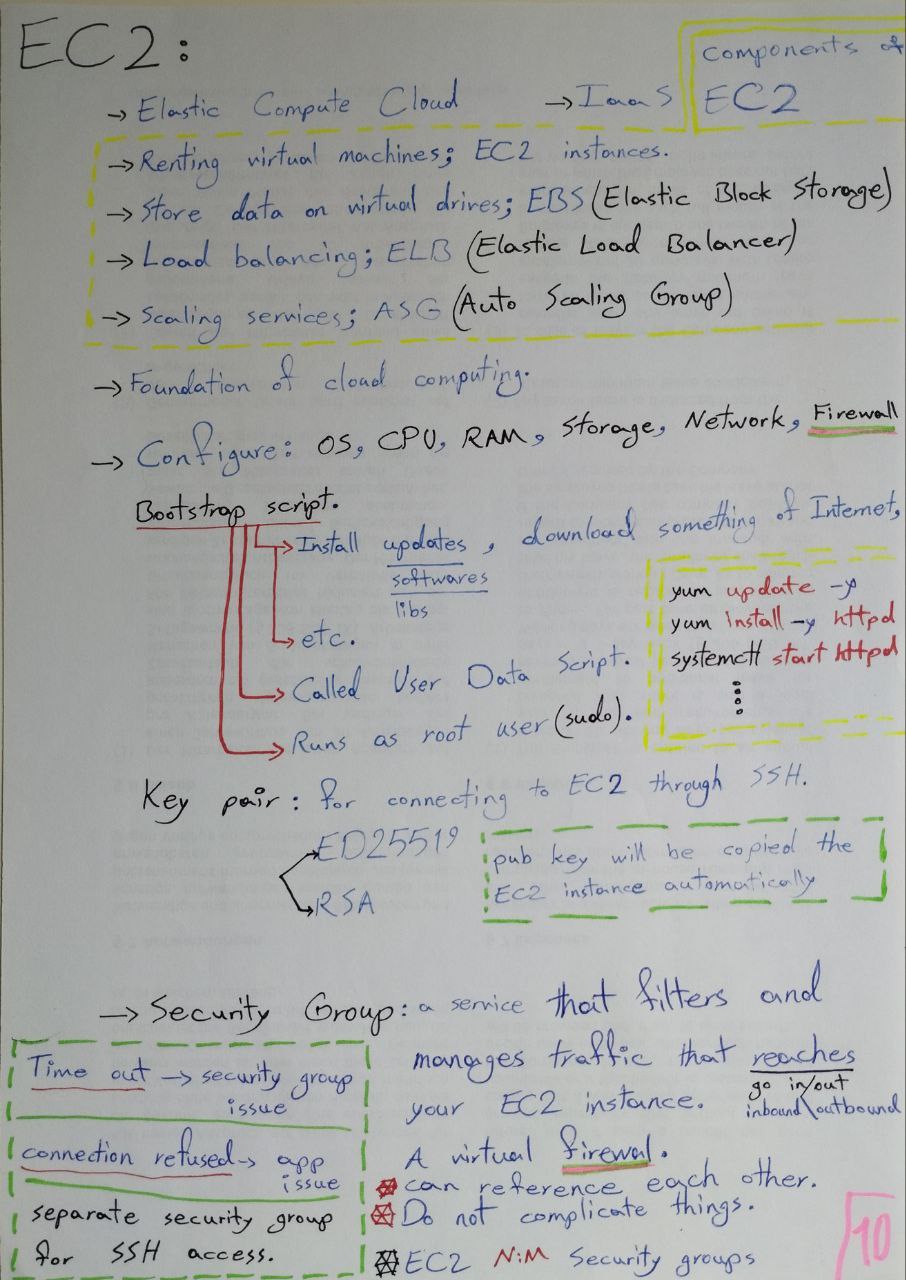 EC2:
components of
EC2
→ Elastic Compute Cloud → IaaS
→ Renting virtual machines; EC2 instances.
→ Store data on virtual drives; EBS (Elastic Block Storage)
→ Load balancing; ELB (Elastic Load Balancer)
→ Scaling services; ASG (Auto Scaling Group)
→ Foundation of cloud computing.
→ Configure: OS, CPU, RAM, Storage, Network, Firewall
Bootstrap script.
→ Install updates, download something of Internet,
softwares
libs
→ etc.
→ Called User Data Script.
→ Runs as root user (sudo).
yum update -y
yum install -y httpd
systemctl start httpd
Key pair: for connecting to EC2 through SSH.
→ ED25519
→ RSA
pub key will be copied the
EC2 instance automatically
→ Security Group: a service that filters and
manages traffic that reaches
go in/out
inbound\outbound
your EC2 instance.
A virtual firewal.
can reference each other.
Do not complicate things.
EC2 N:M Security groups
Time out → security group
issue
connection refused → app
issue
separate security group
for SSH access.
10